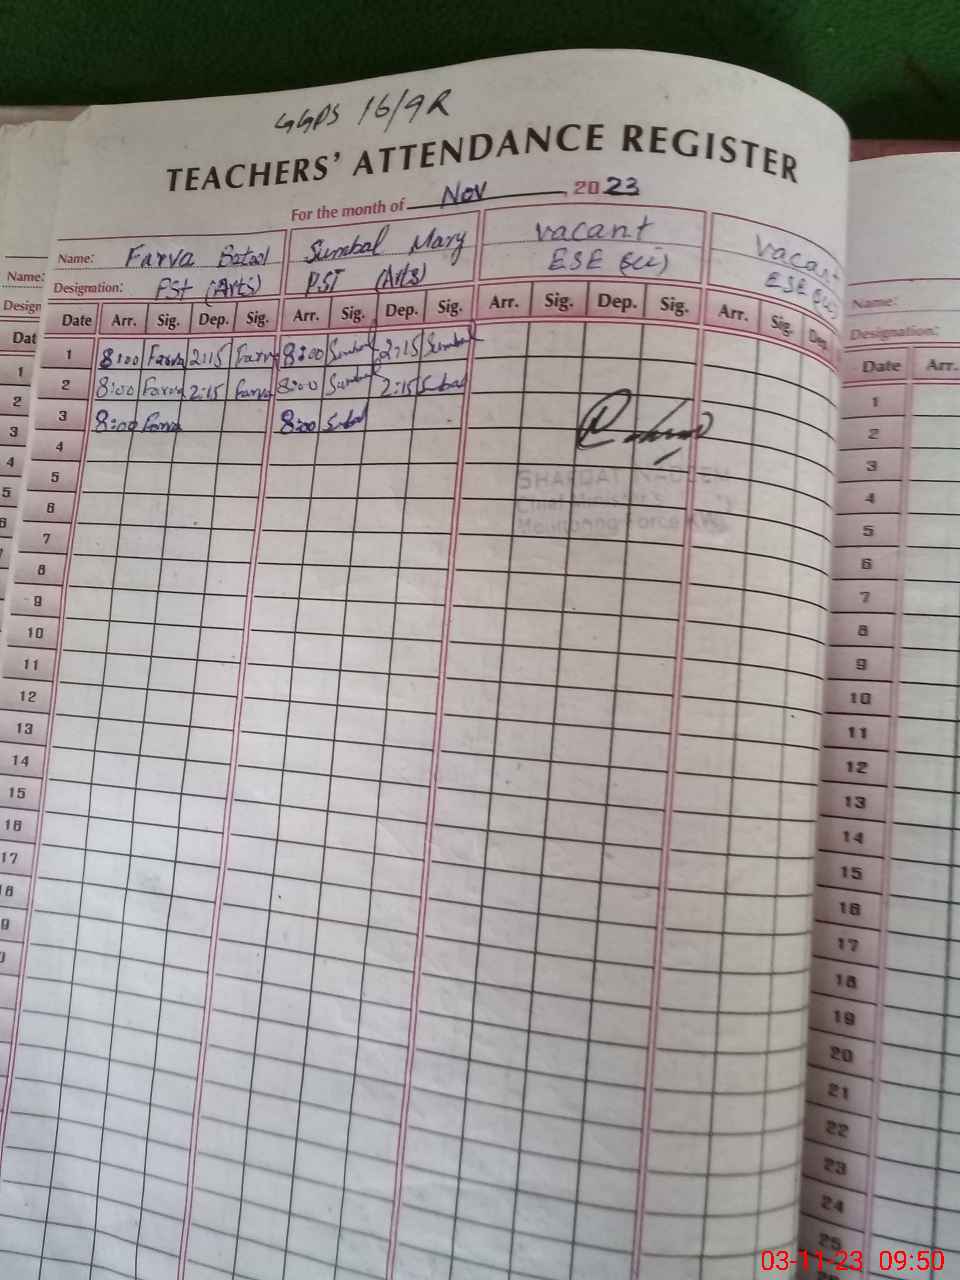 GGPS 16/9R
TEACHERS' ATTENDANCE REGISTER
For the month of Nov 2023
Name: Farva Batool Sumbal Mary vacant vacant
Designation: PST (Arts) PST (Arts) ESE (Sci) ESE (Sci)
Date Arr. Sig. Dep. Sig. Arr. Sig. Dep. Sig. Arr. Sig. Dep. Sig. Arr. Sig. Dep.
1 8:00 Farva 2:15 Farva 8:00 Sumbal 2:15 Sumbal
2 8:00 Farva 2:15 Farva 8:00 Sumbal 2:15 Sumbal
3 8:00 Farva 8:00 Sumbal
4
5
6
7
8
9
10
11
12
13
14
15
16
17
Chief Minister's
Monitoring Force
Name:
Designation:
Date Arr.
1
2
3
4
5
6
7
8
9
10
11
12
13
14
15
16
17
18
19
20
21
22
23
24
25
Name:
Design
Dat
1
2
3
4
5
03-11-23 09:50